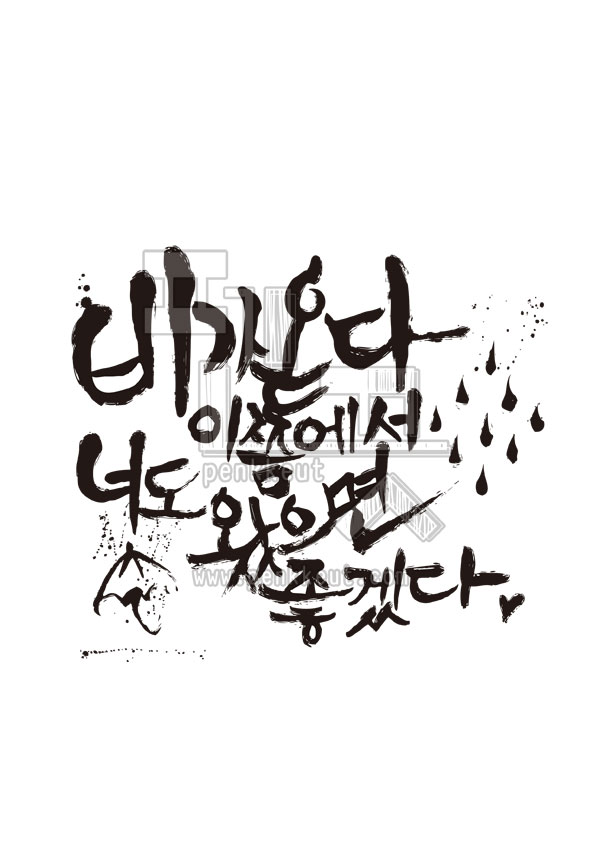 비가온다
이쯤에서
너도
왔으면
좋겠다
penkkout
www.penkkout.com